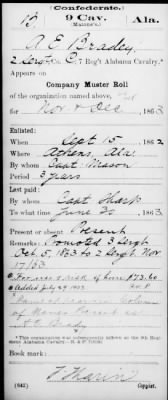 (Confederate.)
B 9 Cav. Ala.
(Malone's.)
A. E. Bradey
2 Serg't, Co. C, 7 Reg't Alabama Cavalry.*
Appears on
Company Muster Roll
of the organization named above,
for Nov & Dec, 1863
Enlisted:
When Sept 15, 1862
Where Athens, Ala
By whom Capt Mason
Period 3 years
Last paid:
By whom Capt
To what time June 30, 1863
Present or absent Present
Remarks: Promoted 3 Sergt
Oct. 5, 1863 to 2 Sergt Nov
1863
For use & risk of horse $73.60
Added July 29 1903
Name appears in Column
of Names Present as
Brady
*This company was subsequently known as the 9th Regiment Alabama Cavalry.
Book mark:
(642) Copyist.